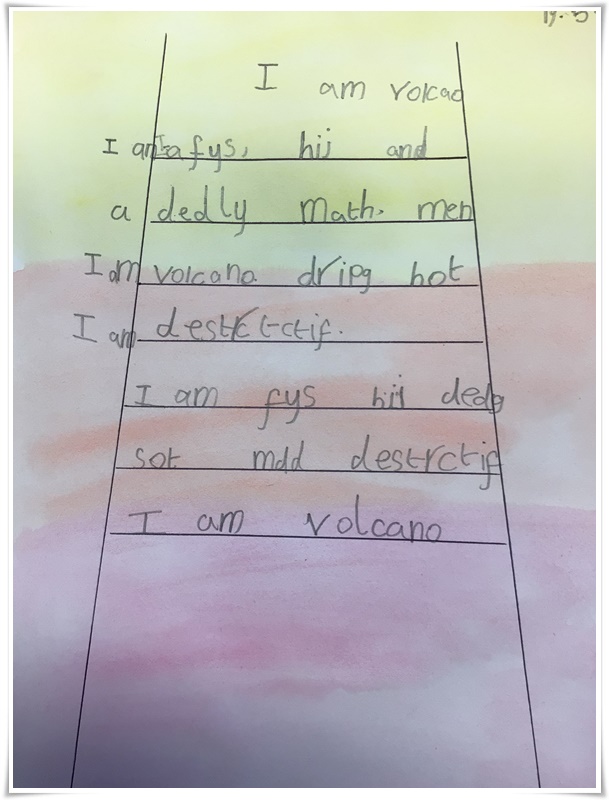 I am volcao
I am a fys, hij and
a dedly math. men
I am volcano. dripg hot
I am destrctctif.
I am fys hij dedg
sot mdd destrctif
I am volcano